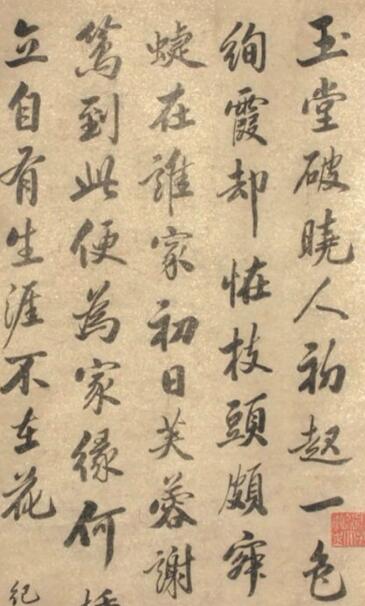 玉堂破曉人初起一色
絢霞却恠枝頭頗寂
蜨在誰家初日芙蓉謝
篤到此便為家緣何
立自有生涯不在花
紀